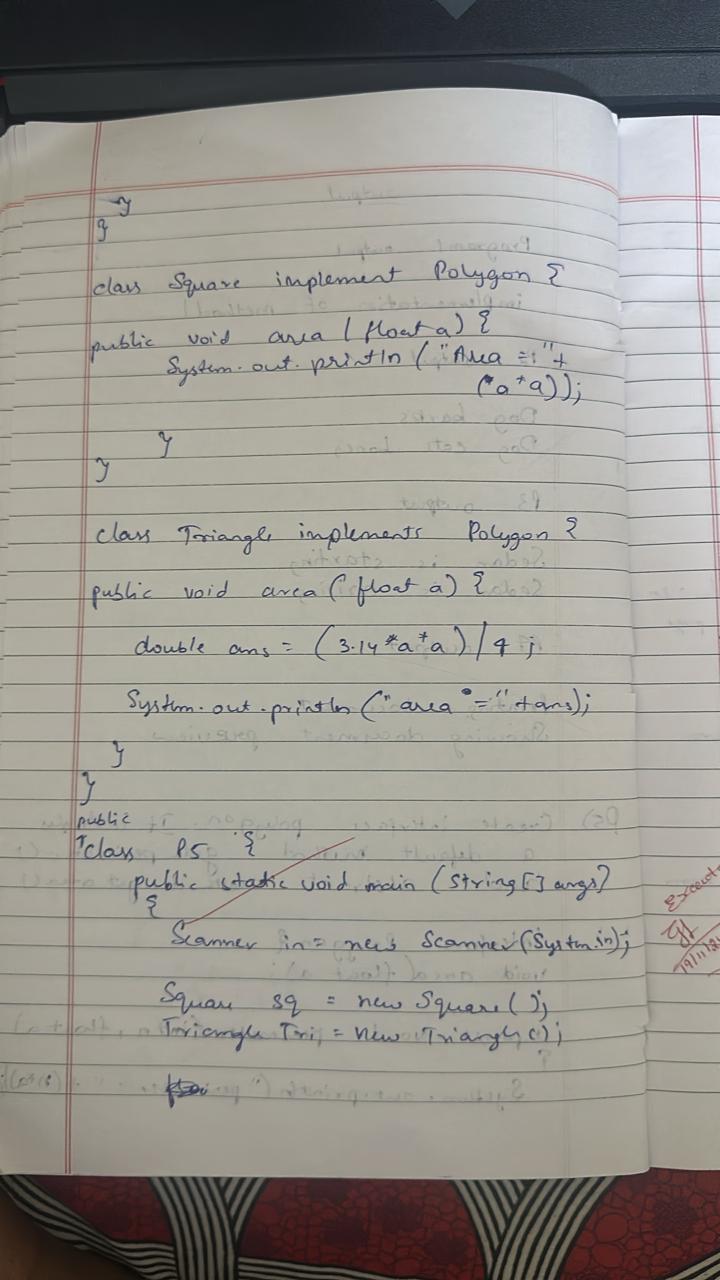 }
}
class Square implement Polygon {
public void area (float a) {
System.out.println ("Area =:"+
(*a*a));
}
}
class Triangle implements Polygon {
public void area (float a) {
double ans = (3.14*a*a)/4;
System.out.println ("area =" +ans);
}
}
public
class P5 {
public static void main (String[] args)
{
Scanner in = new Scanner (System.in);
Square sq = new Square();
Triangle Tri = new Triangle();